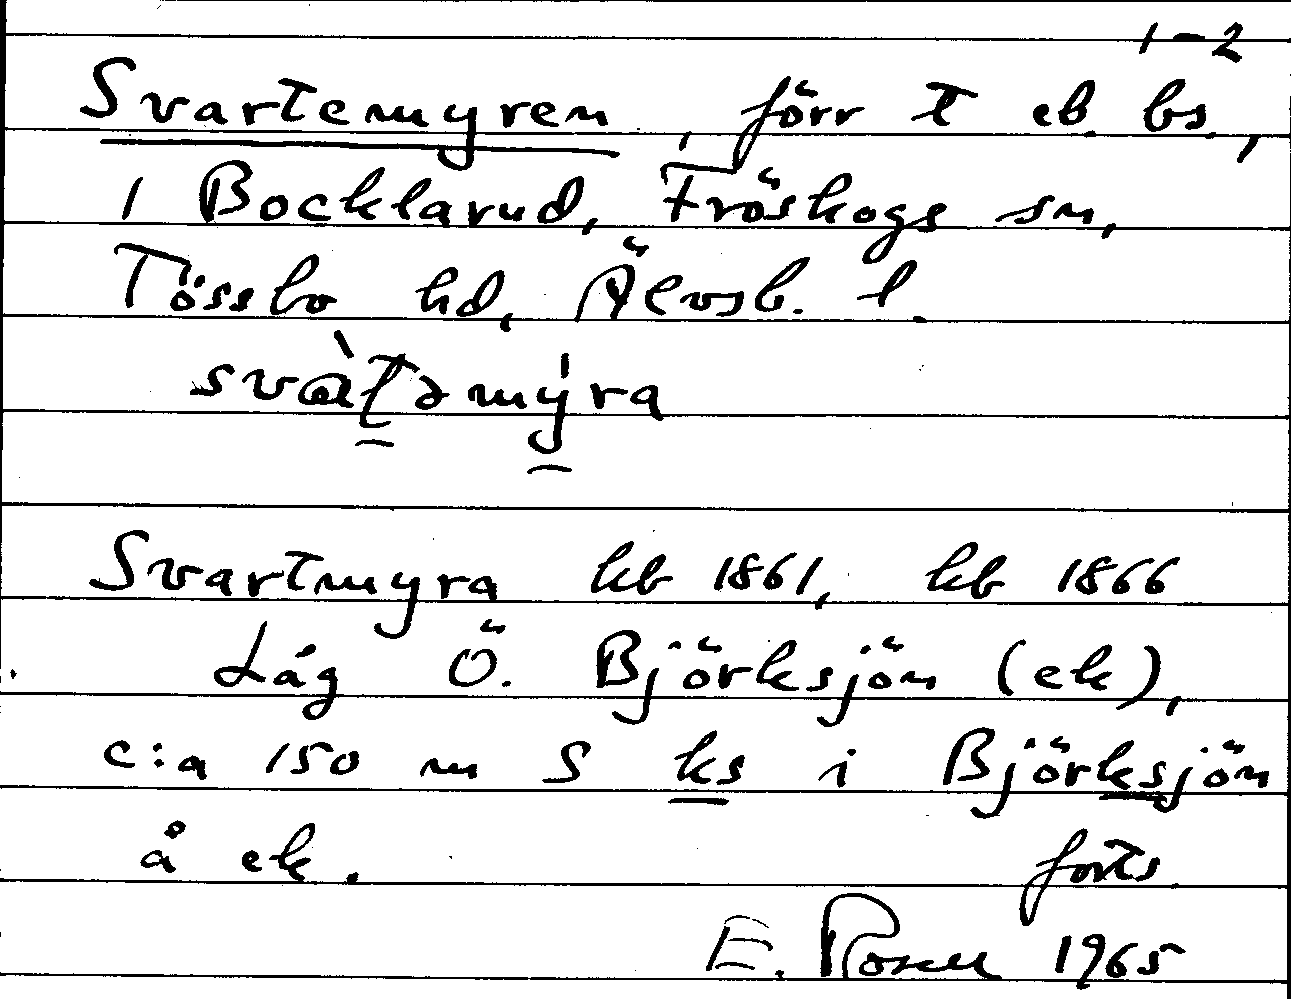 1-2
Svartemyren, förr t eb. bs.,
i Bocklarud, Fröskogs sn,
Tössbo hd, Älvsb. l.
Svartmyra kb 1861, kb 1866
Låg Ö. Björksjön (ek),
c:a 150 m S ks i Björksjön
å ek. forts
E. Rosell 1965